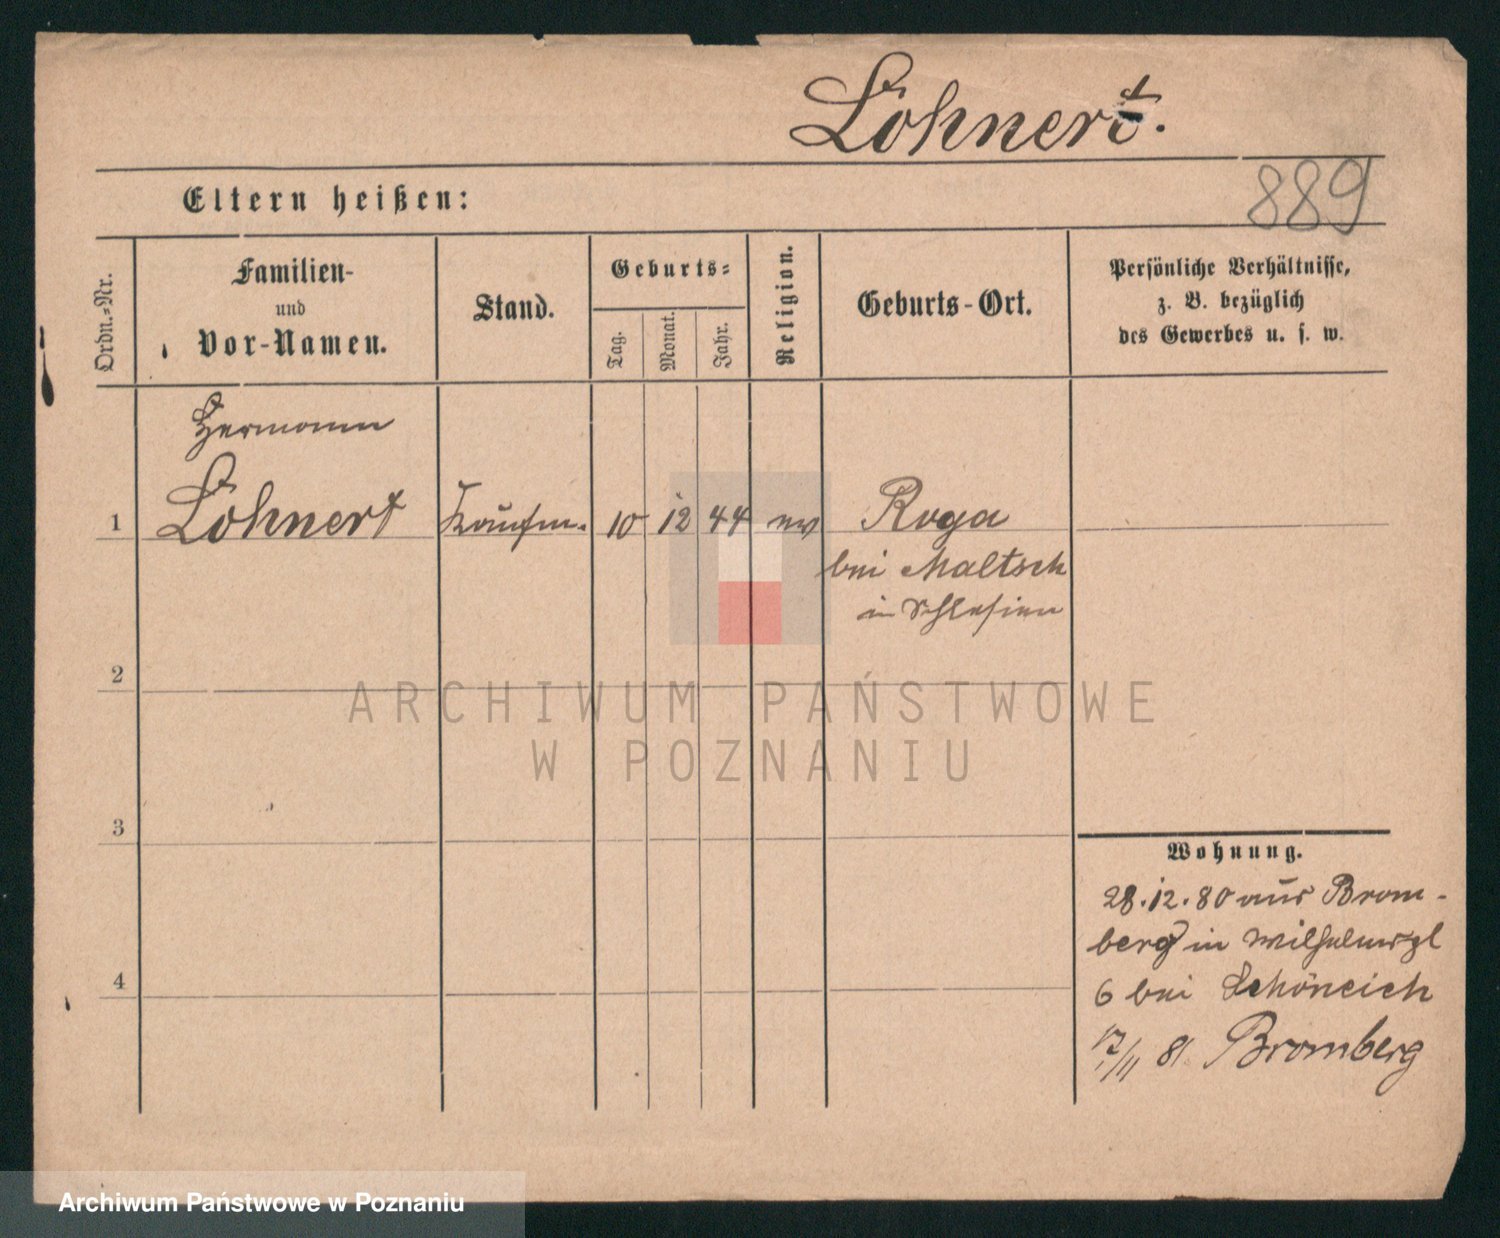 Löhnert.
889
Eltern heißen:
Ordn.=Nr.
Familien-
und
Vor-Namen.
Stand.
Geburts=
Tag.
Monat.
Jahr.
Religion.
Geburts-Ort.
Persönliche Verhältnisse,
z. B. bezüglich
des Gewerbes u. s. w.
Hermann
1 Löhnert Kaufm. 10 12 44 ev Roga
bei Maltsch
in Schlesien
2
3
4
Wohnung.
28.12.80 aus Brom-
berg in Wilhelmspl
6 bei Schöneich
17/11 81 Bromberg
ARCHIWUM PAŃSTWOWE
W POZNANIU
Archiwum Państwowe w Poznaniu